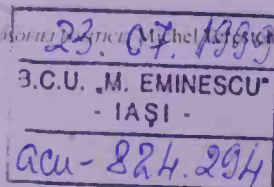 23. 07. 1999
Michel
B.C.U. „M. EMINESCU"
- IAŞI -
acu - 824.294